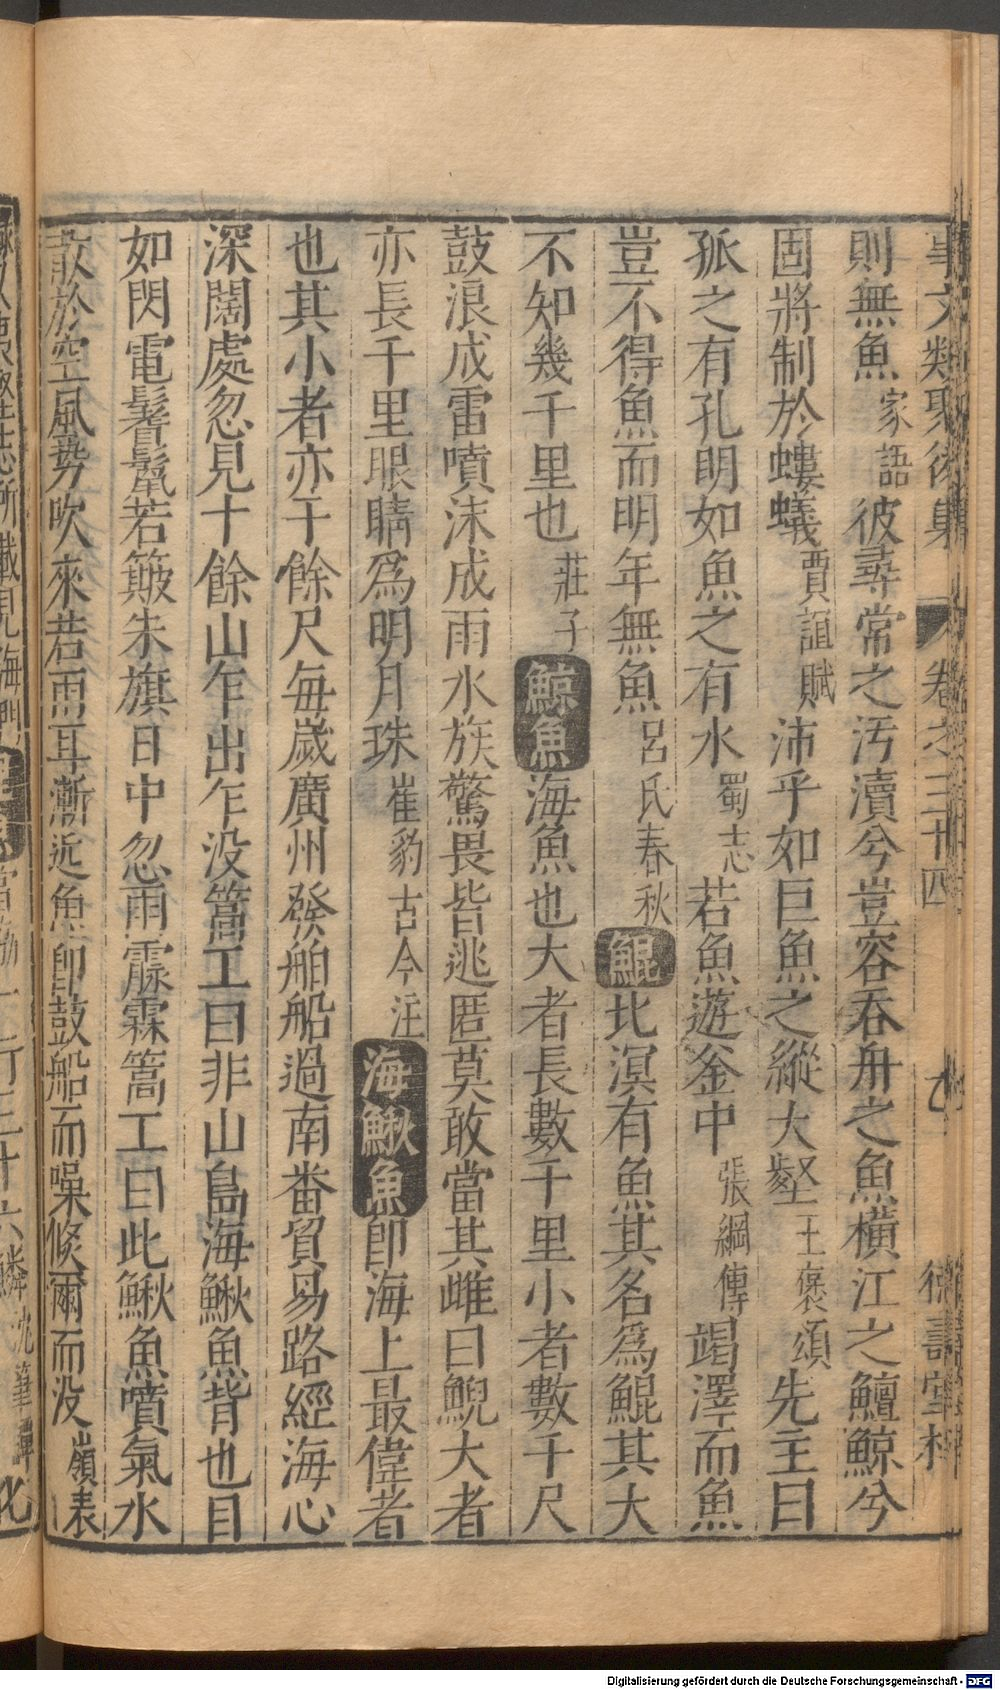 事文類聚後集 卷之三十四 七 德壽堂梓
則無魚家語彼尋常之汚瀆兮豈容吞舟之魚橫江之鱣鯨兮
固將制於螻蟻賈誼賦沛乎如巨魚之縱大壑王褒頌先主曰
孤之有孔明如魚之有水蜀志若魚遊釜中張綱傳竭澤而魚
豈不得魚而明年無魚呂氏春秋鯤北溟有魚其名爲鯤其大
不知幾千里也莊子鯨魚海魚也大者長數千里小者數千尺
鼓浪成雷噴沫成雨水族驚畏皆逃匿莫敢當其雌曰鯢大者
亦長千里眼睛爲明月珠崔豹古今注海鰍魚卽海上最偉者
也其小者亦千餘尺每歲廣州發舶船過南番貿易路經海心
深闊處忽見十餘山乍出乍没篙工曰非山島海鰍魚背也目
如閃電鬐鬣若簸朱旗日中忽雨霢霂篙工曰此鰍魚噴氣水
散於空風勢吹來若雨耳漸近魚卽鼓船而噪倏爾而没嶺表
Digitalisierung gefördert durch die Deutsche Forschungsgemeinschaft - DFG